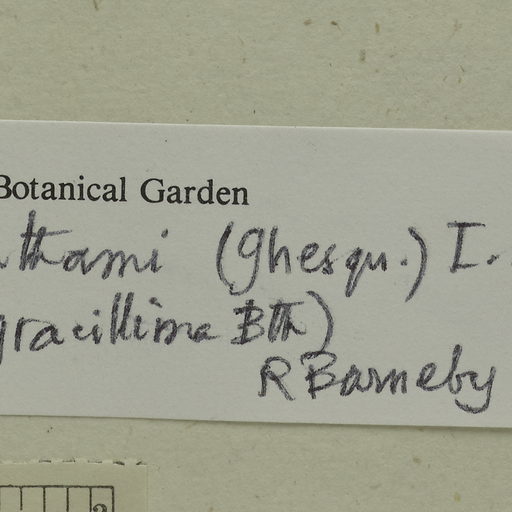 Botanical Garden
nthami (Ghesqu.) I.
gracillima Bth)
R Barneby